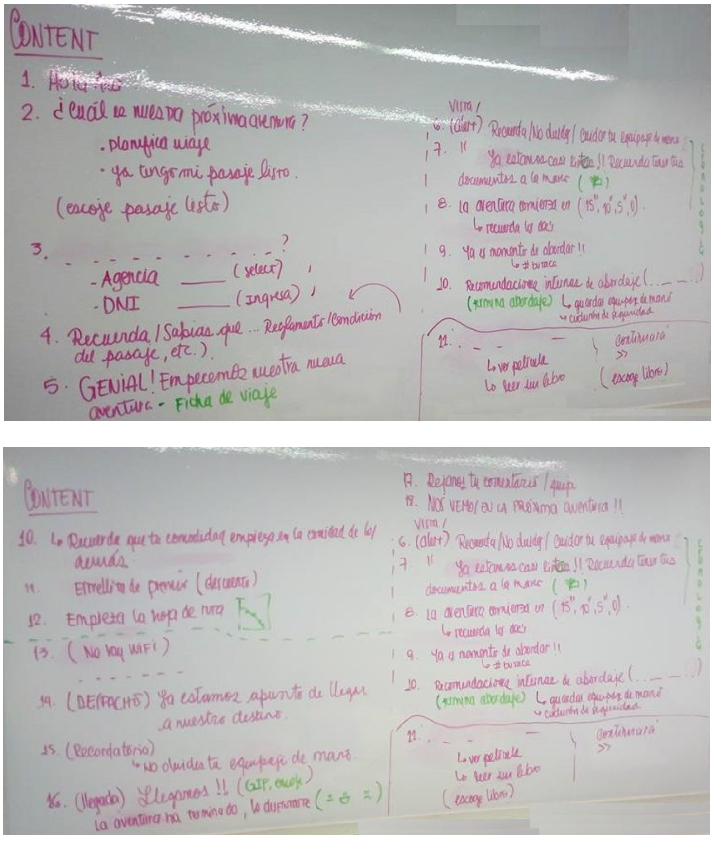 CONTENT
1. Hola
2. ¿Cuál es nuestra próxima aventura?
• planifica viaje
• ya tengo mi pasaje listo.
(escoje pasaje listo)
3. _ _ _ _ _ _ _ _ ?
- Agencia ____ (select)
- DNI ____ (Ingresa)
4. Recuerda / Sabias que ... Reglamento / Condición
del pasaje, etc.).
5. GENIAL! Empecemos nuestra nueva
aventura - Ficha de viaje
VISTA /
6. (alert) Recuerda / No olvides / Cuidar tu equipaje de mano
7. " Ya estamos casi listos !! Recuerda tener tus
documentos a la mano
8. La aventura comienza en (15", 10", 5", 0).
↳ recuerda los
9. Ya es momento de abordar !!
↳ # butaca
10. Recomendaciones internas de abordaje (. _ _ _ .)
(termina abordaje) ↳ guardar equipaje de mano
↳ cinturón de seguridad
11. _ _ _
↳ ver película
↳ leer un libro
Continuará
>>
(escoge libro)
CONTENT
10. ↳ Recuerda que tu comodidad empieza en la comodidad de los/
demás.
11. de premier (descuento)
12. Empieza la hoja de ruta
13. (No hay WIFI)
_ _ _ _ _ _ _
14. (DESPACHO) Ya estamos apunto de llegar
a nuestro destino.
15. (Recordatorio)
↳ No olvides tu equipaje de mano.
16. (llegada) Llegamos !! (GIF, )
La aventura ha terminado, la disfrutaste
17. Dejanos tu comentario / queja
18. NOS VEMOS EN LA PRÓXIMA aventura !!
VISTA /
6. (alert) Recuerda / No olvides / Cuidar tu equipaje de mano
7 " Ya estamos casi listos !! Recuerda tener tus
documentos a la mano
8. La aventura comienza en (15", 10", 5", 0).
↳ recuerda los
9. Ya es momento de abordar !!
↳ # butaca
10. Recomendaciones internas de abordaje (. _ _ _ .)
(termina abordaje) ↳ guardar equipaje de mano
↳ cinturón de seguridad
11. _ _ _
↳ ver película
↳ leer un libro
(escoge libro)
Continuará
>>